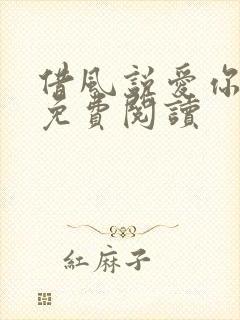 借風説愛你
免費閱讀
紅麻子